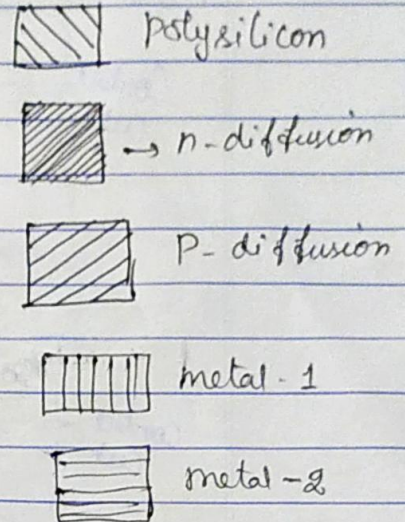 polysilicon
→ n-diffusion
P-diffusion
metal-1
metal-2